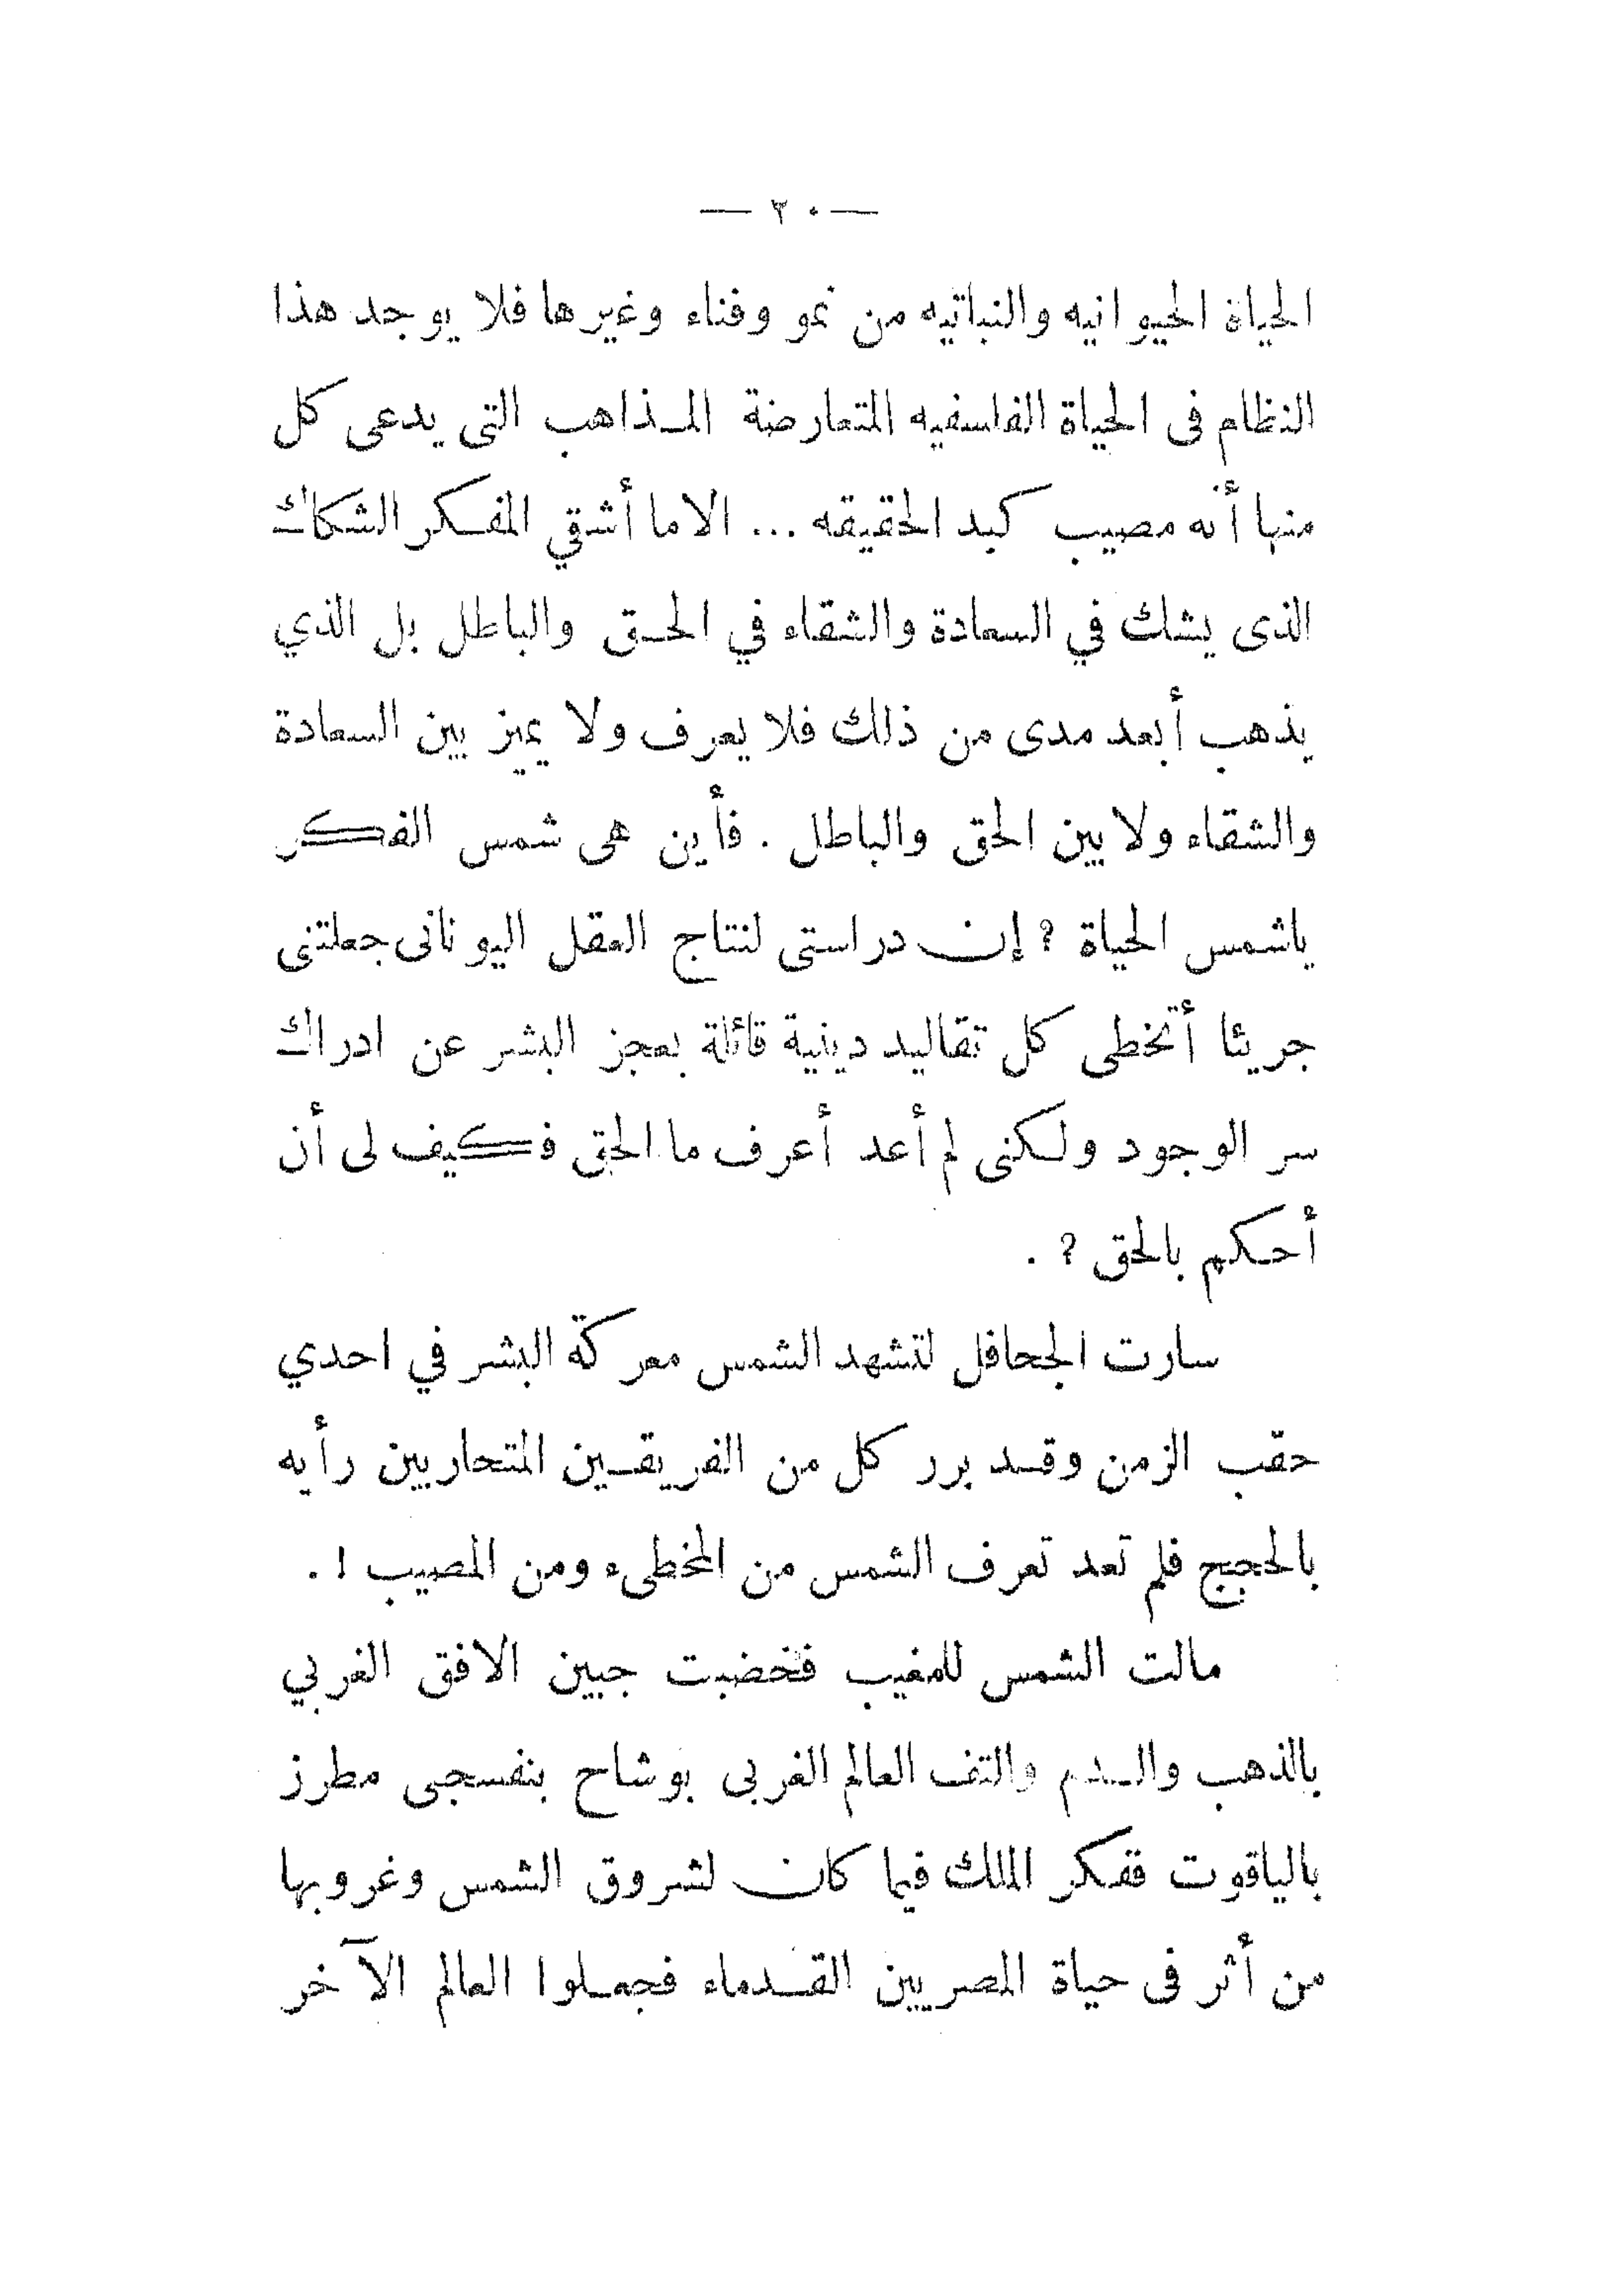 — ٢٠ —
الحياة الحيوانيه والنباتيه من نمو وفناء وغيرها فلا يوجد هذا
النظام فى الحياة الفلسفيه المتعارضة المذاهب التى يدعى كل
منها أنه مصيب كبد الحقيقه ... الا ما أشقي المفكر الشكاك
الذى يشك في السعادة والشقاء في الحق والباطل بل الذي
يذهب أبعد مدى من ذلك فلا يعرف ولا يميز بين السعادة
والشقاء ولا بين الحق والباطل . فأين هى شمس الفكر
ياشمس الحياة ؟ إن دراستى لنتاج العقل اليونانى جعلتنى
جريئا أتخطى كل تقاليد دينية قائلة بعجز البشر عن ادراك
سر الوجود ولكنى لم أعد أعرف ما الحق فكيف لى أن
أحكم بالحق ؟ .
سارت الجحافل لتشهد الشمس معركة البشر في احدي
حقب الزمن وقد برر كل من الفريقين المتحاربين رأيه
بالحجج فلم تعد تعرف الشمس من المخطىء ومن المصيب ! .
مالت الشمس للمغيب فخضبت جبين الافق الغربي
بالذهب والدم والتف العالم الغربى بوشاح بنفسجى مطرز
بالياقوت ففكر الملك فيما كان لشروق الشمس وغروبها
من أثر فى حياة المصريين القدماء فجعلوا العالم الآخر